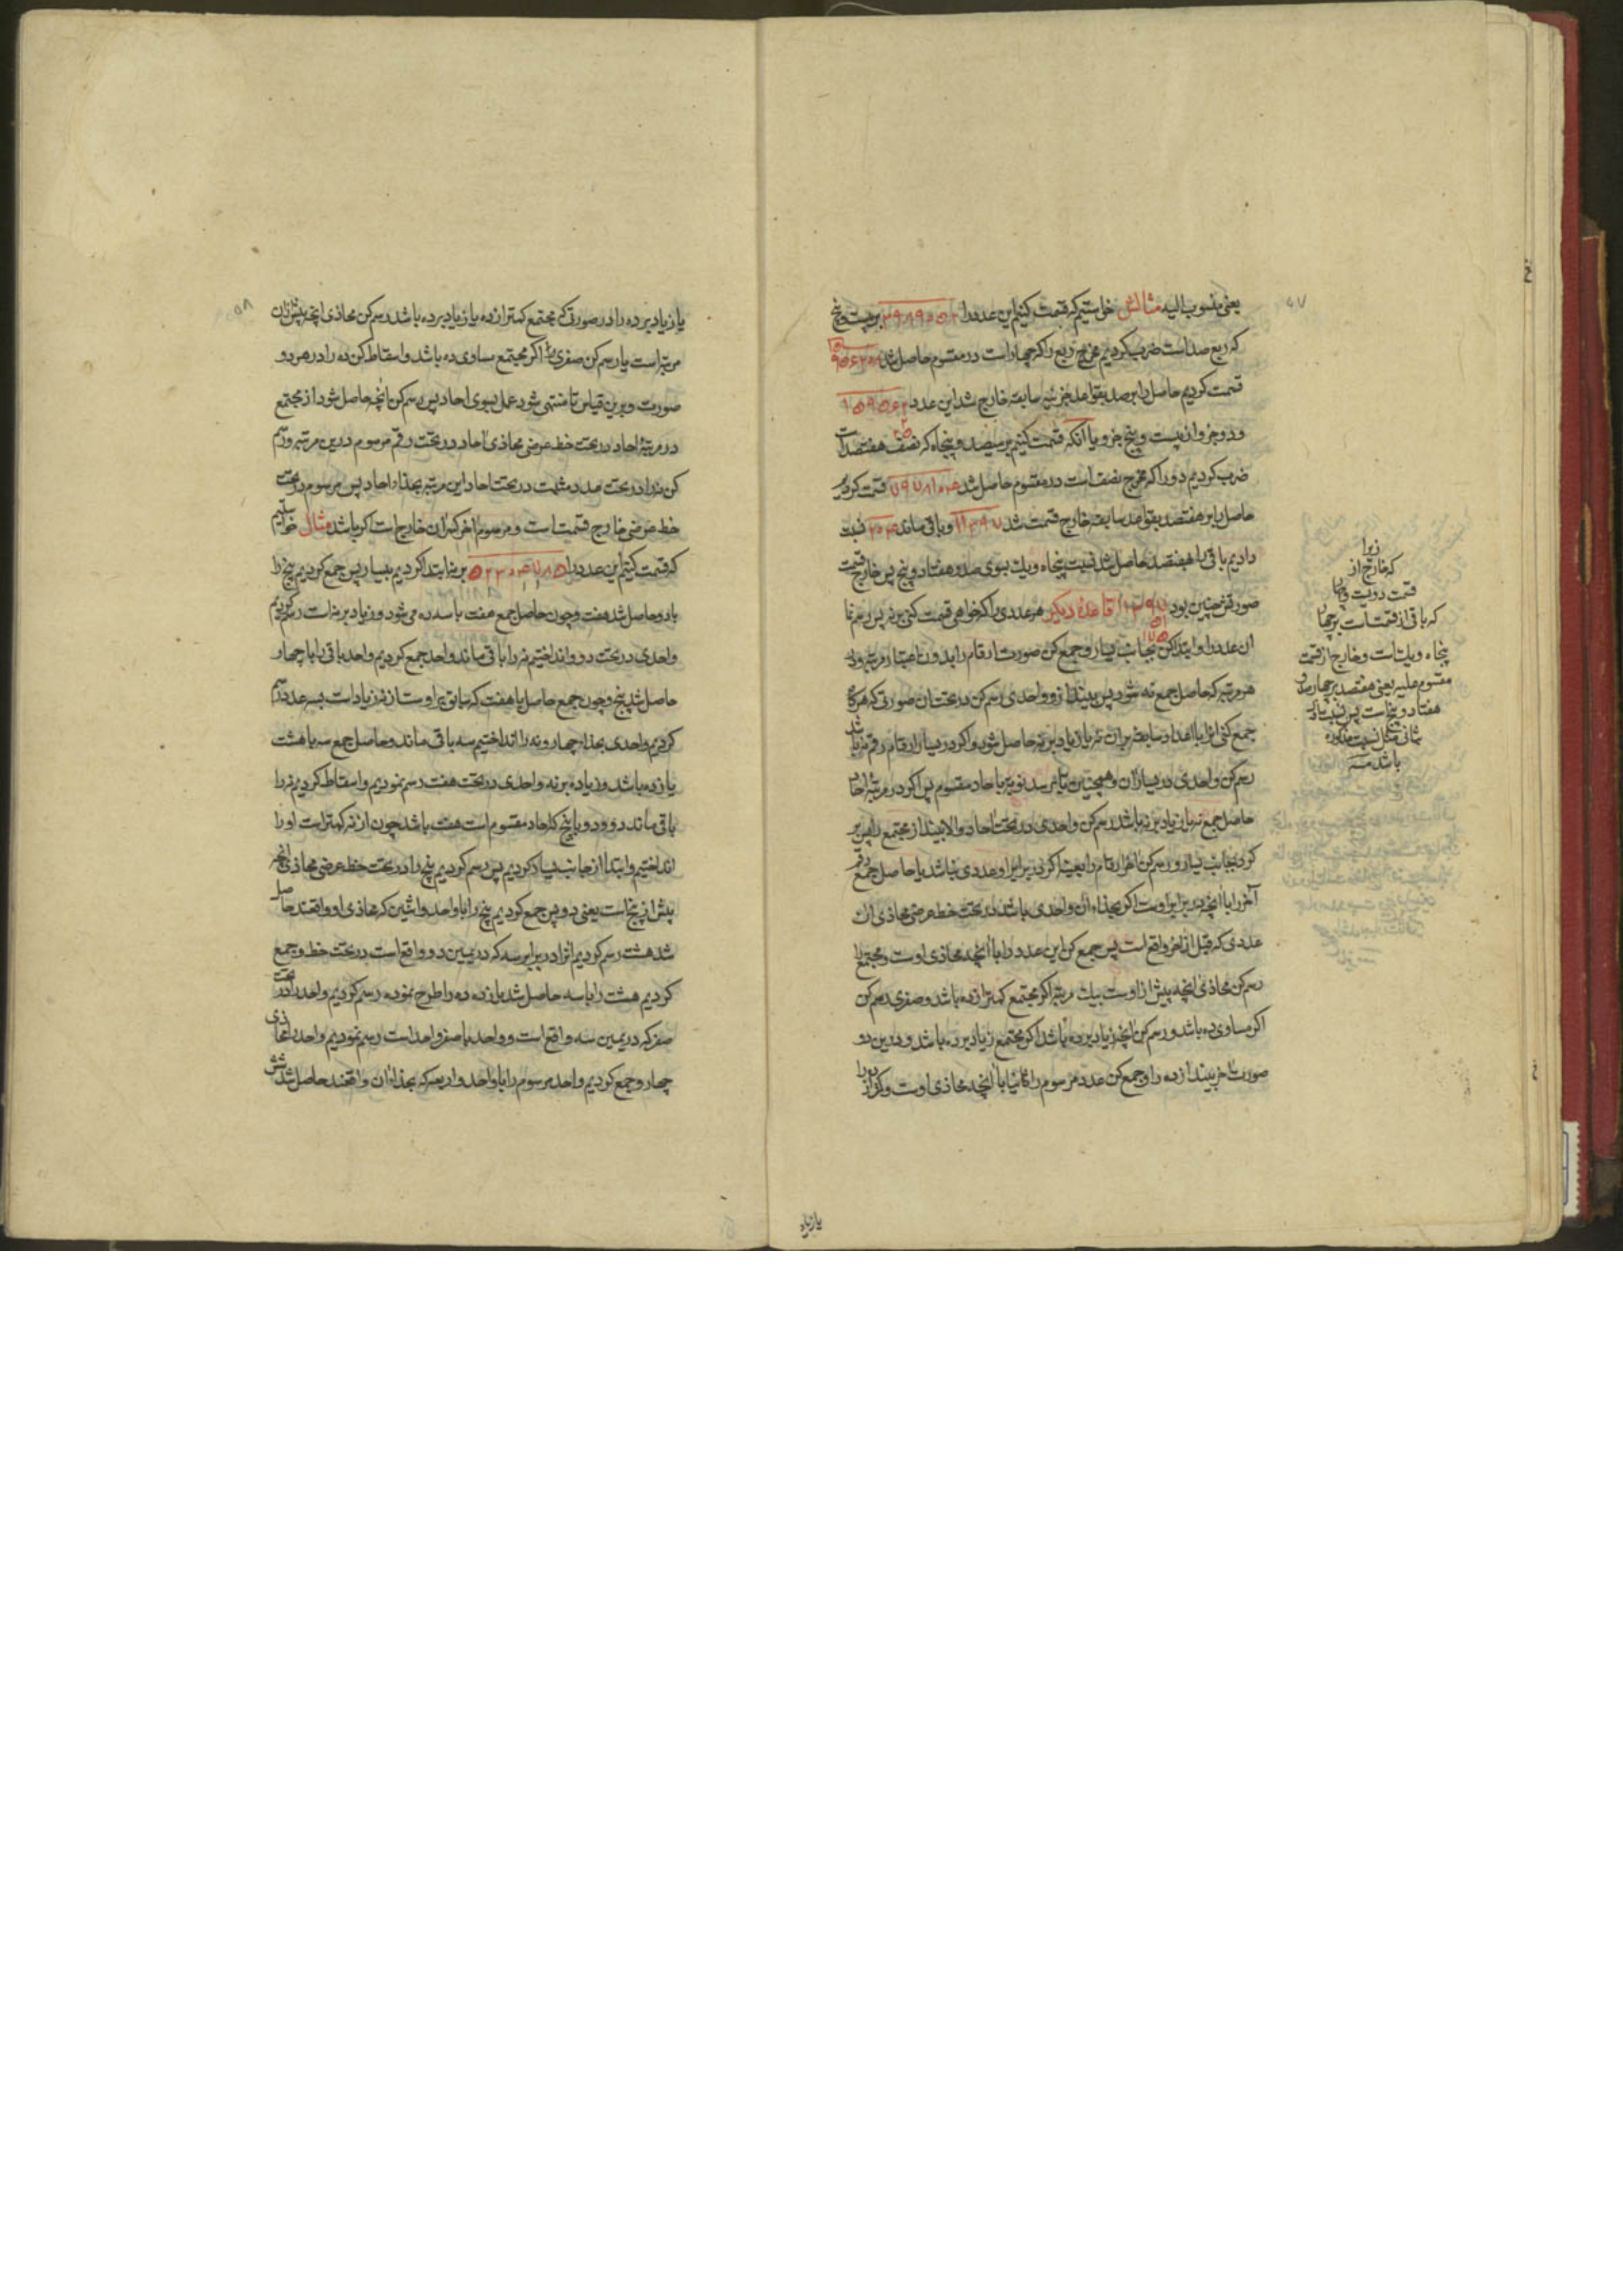 ۴۷
یعنی منسوب الیه مثالش خواستیم که قسمت کنیم این عدد را بر بیست و پنج
که ربع صد است ضرب کردیم مخرج ربع را که چهار است در مقسوم حاصل شد
قسمت کردیم حاصل را بر صد بقواعد سابقه خارج شد این عدد
و دو جزو از بیست و پنج جزو یا آنکه قسمت کنیم بر سیصد و پنجاه که نصف هفتصد است
ضرب کردیم دو را که مخرج نصف است در مقسوم حاصل شد قسمت کردیم
حاصل را بر هفتصد بقواعد سابقه خارج قسمت شد و باقی ماند نسبت
دادیم باقی را بهفتصد حاصل شد نسبت پنجاه و یک بسوی صد و هفتاد و پنج پس خارج قسمت
صورتش چنین بود قاعدهٔ دیکر هر عددی را که خواهی قسمت کنی بر نه پس رسم نما
ان عدد را و ابتدا کن بجانب یسار و جمع کن صورت ارقام را بدون اعتبار مرتبه و در
هر مرتبه که حاصل جمع نه شود پس بینداز و واحدی رسم کن در تحت ان صورتی که هرکاه
جمع کنی انرا با اعداد سابقه بران نه یا زیاد بر نه حاصل شود و اکر در یسار ارقام رقم نه باشد
رسم کن واحدی در یسار آن و همچنین تا برسد نوبت باحاد مقسوم پس اکر در مرتبهٔ احاد
حاصل جمع نه یا زیاد بر نه باشد رسم کن واحدی در تحت احاد و الا بینداز مجتمع را پس بر
کرد بجانب یسار و رسم کن آخر ارقام را بعینه اکر در برابر او عددی نباشد یا حاصل جمع رقم
آخر را با آنچه در برابر اوست اکر بحذاء آن واحدی باشد در تحت خط عرضی محاذی ان
عددی که قبل از آخر واقع است پس جمع کن این عدد را با آنچه محاذی اوست و مجتمع را
رسم کن محاذی آنچه پیش از اوست بیک مرتبه اکر مجتمع کمتر از ده باشد و صفری رسم کن
اکر مساوی ده باشد و رسم کن آنچه زیاد بر ده باشد اکر مجتمع زیاد بر ده باشد و درین دو
صورت اخر بینداز ده را و جمع کن عدد مرسوم را ثانیا با آنچه محاذی اوست و
زیرا
که خارج از
قسمت دویست و چهار
که باقی از قسمتست بر چهار
پنجاه و یک است و خارج از قسمت
مقسوم علیه یعنی هفتصد بر چهار صد و
هفتاد و پنج است پس نسبت
ثانی مثل نسبت مذکوره
باشد منه
یا زیاد
۵۸
یا زیاد بر ده را در صورتی که مجتمع کمتر از ده یا زیاد بر ده باشد رسم کن محاذی آنچه پیش از آن
مرتبه است یا رسم کن صفری را اکر مجتمع مساوی ده باشد و اسقاط کن ده را در هر دو
صورت و برین قیاس تا منتهی شود عمل بسوی احاد پس رسم کن آنچه حاصل شود از مجتمع
در مرتبهٔ احاد در تحت خط عرضی محاذی احاد در تحت رقم مرسوم درین مرتبه و رسم
کن نه را در تحت عدد مثبت در تحت احاد این مرتبه بحذاء احاد پس مرسوم در تحت
خط عرضی خارج قسمتست و مرسوم آخر کسر ان خارج است اکر باشد مثال خواستیم
که قسمت کنیم این عدد را بر نه ابتدا کردیم بیسار پس جمع کردیم پنج را
با دو حاصل شد هفت و چون حاصل جمع هفت با سه ده می شود و زیاد بر نه است رسم کردیم
واحدی در تحت دو و انداختیم نه را باقی ماند واحد جمع کردیم واحد باقی را با چهار
حاصل شد پنج و چون جمع حاصل با هفت که سابق بر اوست از نه زیاد است پس عدد رسم
کردیم واحدی بحذاء چهار و نه را انداختیم سه باقی ماند و حاصل جمع سه با هشت
یازده باشد و زیاده بر نه واحدی در تحت هفت رسم نمودیم و اسقاط کردیم نه را
باقی ماند دو و دو با پنج که احاد مقسوم است هفت باشد چون از نه کمتر است او را
انداختیم و ابتدا از جانب یسار کردیم پس رسم کردیم پنج را در تحت خط عرضی محاذی آنچه
پیش از پنج است یعنی دو پس جمع کردیم پنج را با واحد و اثنین که محاذی او واقعند حاصل
شد هشت رسم کردیم انرا در برابر سه که در یمین دو واقع است در تحت خط و جمع
کردیم هشت را با سه حاصل شد یازده ده را طرح نموده رسم کردیم واحد را در تحت
صفر که در یمین سه واقع است و واحد با صفر واحد است رسم نمودیم واحد را محاذی
چهار و جمع کردیم واحد مرسوم را با واحد و اربعه که بحذاء ان واقعند حاصل شد شش